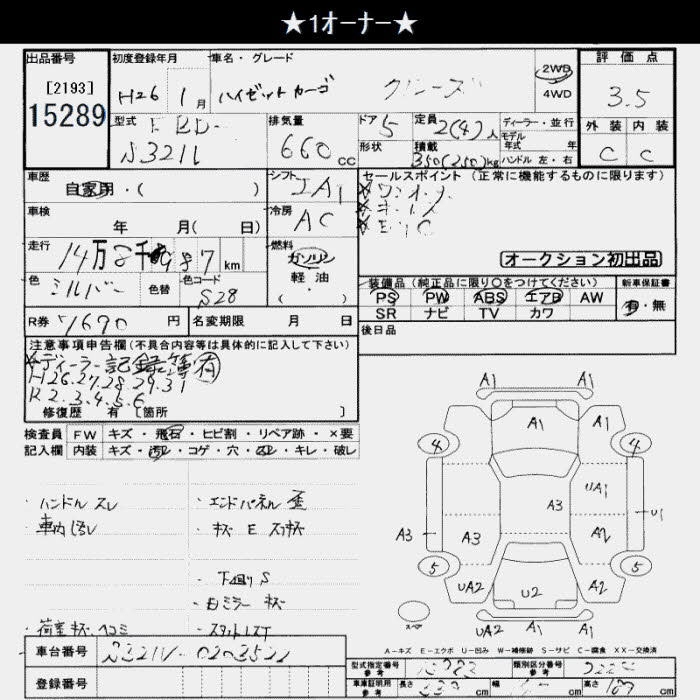 ★1オーナー★
出品番号 初度登録年月 車名・グレード 評価点
[2193]
15289
H26年 1月 ハイゼットカーゴ クルーズ 2WD 4WD 3.5
型式 EBD- 排気量 ドア 定員 ディーラー・並行 外装 内装
S321V 660cc 5 2(4)人 モデル年式 年 C C
形状 積載 350(250)kg ハンドル 左・右
車歴 自家用・( ) シフト IA セールスポイント(正常に機能するものに限ります)
車検 年 月( 日) 冷房 AC
オークション初出品
走行 14万8千987km 燃料 ガソリン 軽油・( )
色 シルバー 色替 色コード S28
装備品(純正品に限り○をつけてください) 新車保証書
PS PW ABS エアB AW 有・無
SR ナビ TV カワ
R券 7670円 名変期限 月 日 後日品
注意事項申告欄(不具合内容等は具体的に記入して下さい)
ディーラー記録簿有
H26.27.28.29.31
R2.3.4.5.6
修復歴 有 〔箇所 〕
検査員 FW キズ・飛石・ヒビ割・リペア跡・×要
記入欄 内装 キズ・汚レ・コゲ・穴・スレ・キレ・破レ
・ハンドルスレ ・エンドパネル歪
・車内汚レ
・下廻りS
・右ミラー
・荷室 ヘコミ
A1 A1
A1 A1 A1
4 4
UA1 U1
A3 A3 A3 A2
5 5
UA2 U2 A2
UA2 A1 A1
スペア
A-キズ E-エクボ U-凹み W-補修跡 S-サビ C-腐食 XX-交換済
車台番号 S321V-
登録番号
型式指定番号 参考 類別区分番号 参考
車庫証明用 参考 長さ cm 幅 cm 高さ cm